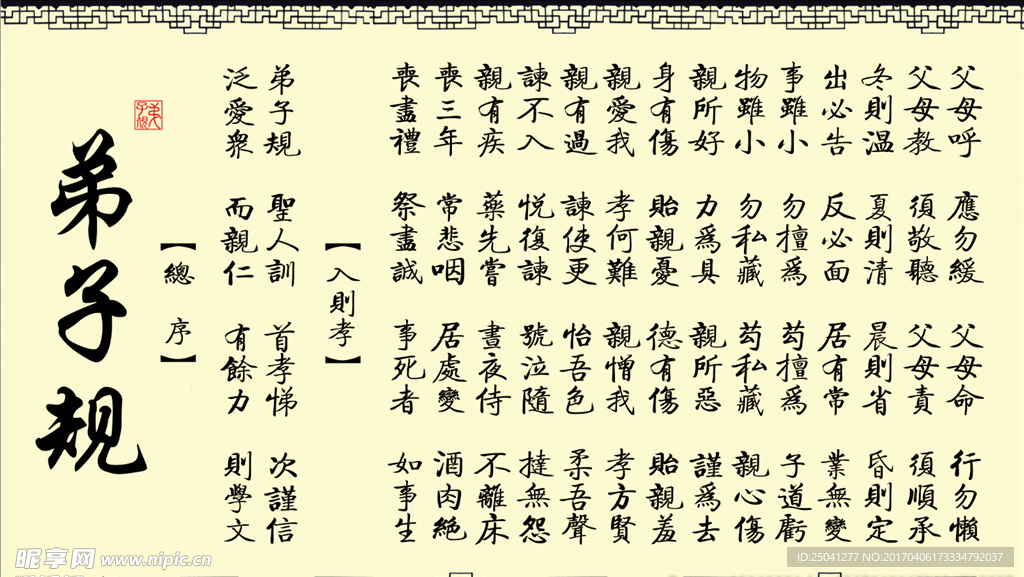 弟子規
弟子規
【總序】
弟子規 聖人訓 首孝悌 次謹信
泛愛眾 而親仁 有餘力 則學文
【入則孝】
父母呼 應勿緩 父母命 行勿懶
父母教 須敬聽 父母責 須順承
冬則温 夏則清 晨則省 昏則定
出必告 反必面 居有常 業無變
事雖小 勿擅為 芶擅為 子道虧
物雖小 勿私藏 芶私藏 親心傷
親所好 力為具 親所惡 謹為去
身有傷 貽親憂 德有傷 貽親羞
親愛我 孝何難 親憎我 孝方賢
親有過 諫使更 怡吾色 柔吾聲
諫不入 悦復諫 號泣隨 撻無怨
親有疾 藥先嘗 晝夜侍 不離床
喪三年 常悲咽 居處變 酒肉絕
喪盡禮 祭盡誠 事死者 如事生
昵享网 www.nipic.cn
ID:25041277 NO:20170406173334792037